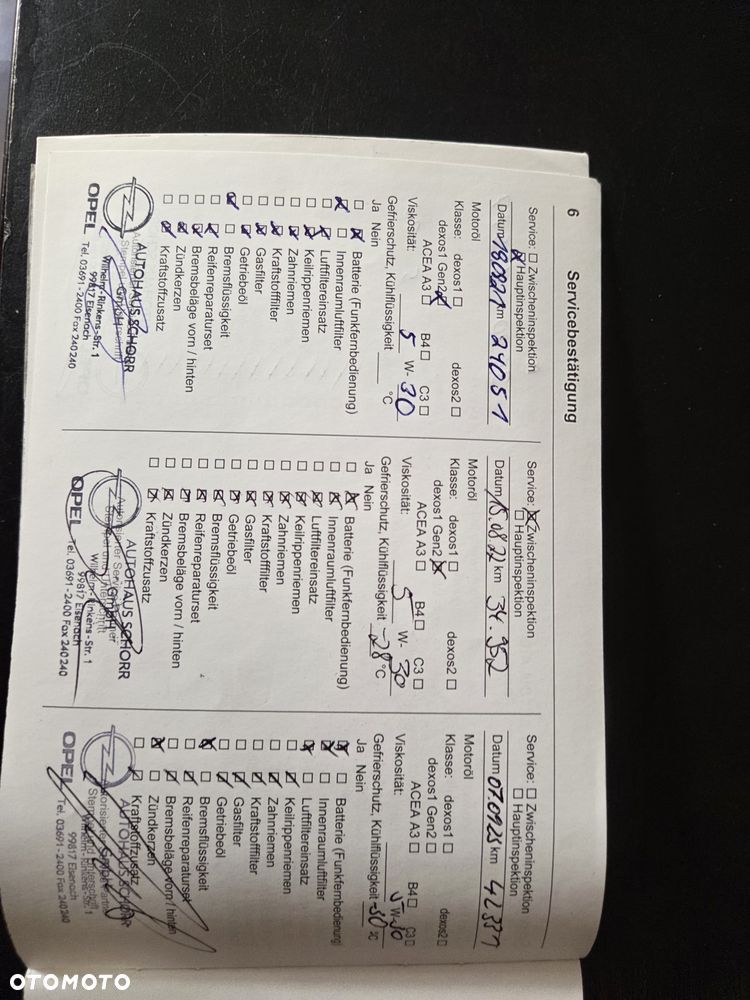 6
Servicebestätigung
Service: Zwischeninspektion
Hauptinspektion
Datum 180821 km 24051
Motoröl
Klasse: dexos1 dexos2
dexos1 Gen2
ACEA A3 B4 C3
Viskosität: 5 W- 30
Gefrierschutz, Kühlflüssigkeit °C
Ja Nein
Batterie (Funkfernbedienung)
Innenraumluftfilter
Luftfiltereinsatz
Keilrippenriemen
Zahnriemen
Kraftstofffilter
Gasfilter
Getriebeöl
Bremsflüssigkeit
Reifenreparaturset
Bremsbeläge vorn / hinten
Zündkerzen
Kraftstoffzusatz
AUTOHAUS SCHORR
GmbH
Wilhelm-Rinkens-Str. 1
99817 Eisenach
OPEL Tel. 03691-2400 Fax 240240
Service: Zwischeninspektion
Hauptinspektion
Datum 15.08.22 km 34.352
Motoröl
Klasse: dexos1 dexos2
dexos1 Gen2
ACEA A3 B4 C3
Viskosität: 5 W- 30
Gefrierschutz, Kühlflüssigkeit -28 °C
Ja Nein
Batterie (Funkfernbedienung)
Innenraumluftfilter
Luftfiltereinsatz
Keilrippenriemen
Zahnriemen
Kraftstofffilter
Gasfilter
Getriebeöl
Bremsflüssigkeit
Reifenreparaturset
Bremsbeläge vorn / hinten
Zündkerzen
Kraftstoffzusatz
AUTOHAUS SCHORR
GmbH
Wilhelm-Rinkens-Str. 1
99817 Eisenach
OPEL Tel. 03691-2400 Fax 240240
Service: Zwischeninspektion
Hauptinspektion
Datum 07.0923 km 42331
Motoröl
Klasse: dexos1 dexos2
dexos1 Gen2
ACEA A3 B4 C3
Viskosität: 5 W- 30
Gefrierschutz, Kühlflüssigkeit -30 °C
Ja Nein
Batterie (Funkfernbedienung)
Innenraumluftfilter
Luftfiltereinsatz
Keilrippenriemen
Zahnriemen
Kraftstofffilter
Gasfilter
Getriebeöl
Bremsflüssigkeit
Reifenreparaturset
Bremsbeläge vorn / hinten
Zündkerzen
Kraftstoffzusatz
AUTOHAUS SCHORR
99817 Eisenach
OPEL Tel. 03691-2400 Fax 240240
OTOMOTO